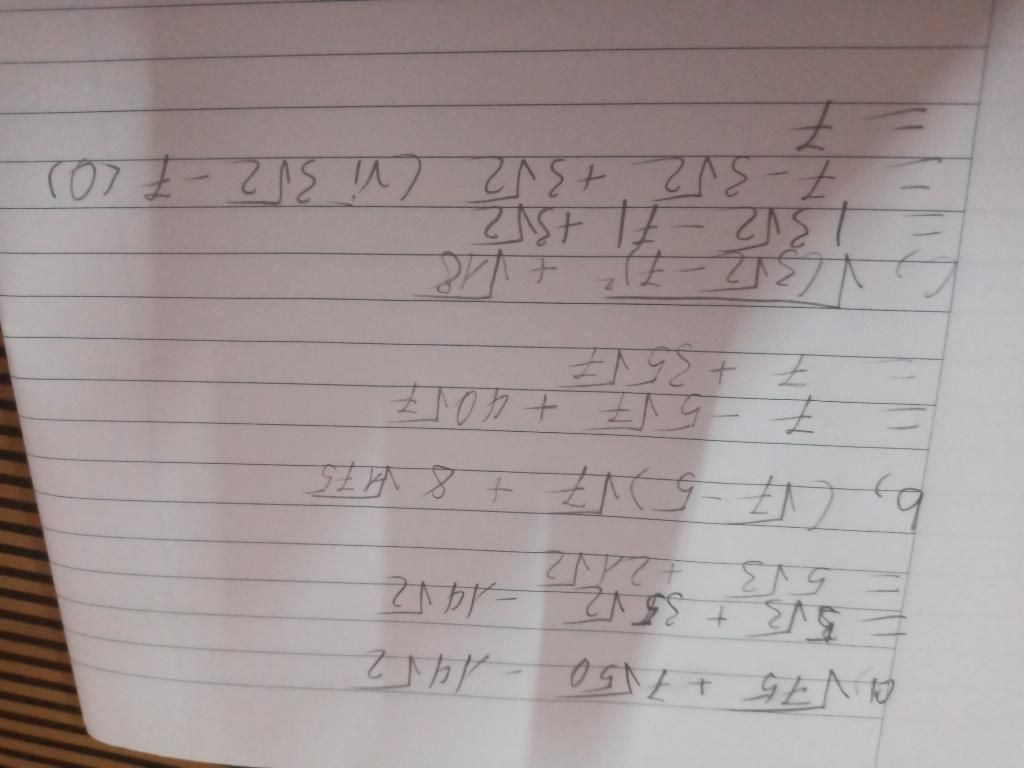 a) √75 + 7√50 - 14√2
= 5√3 + 35√2 - 14√2
= 5√3 + 21√2
b) (√7 - 5)√7 + 8√175
= 7 - 5√7 + 40√7
= 7 + 35√7
c) √(3√2 - 7)² + √18
= |3√2 - 7| + 3√2
= 7 - 3√2 + 3√2 (Vì 3√2 - 7 < 0)
= 7